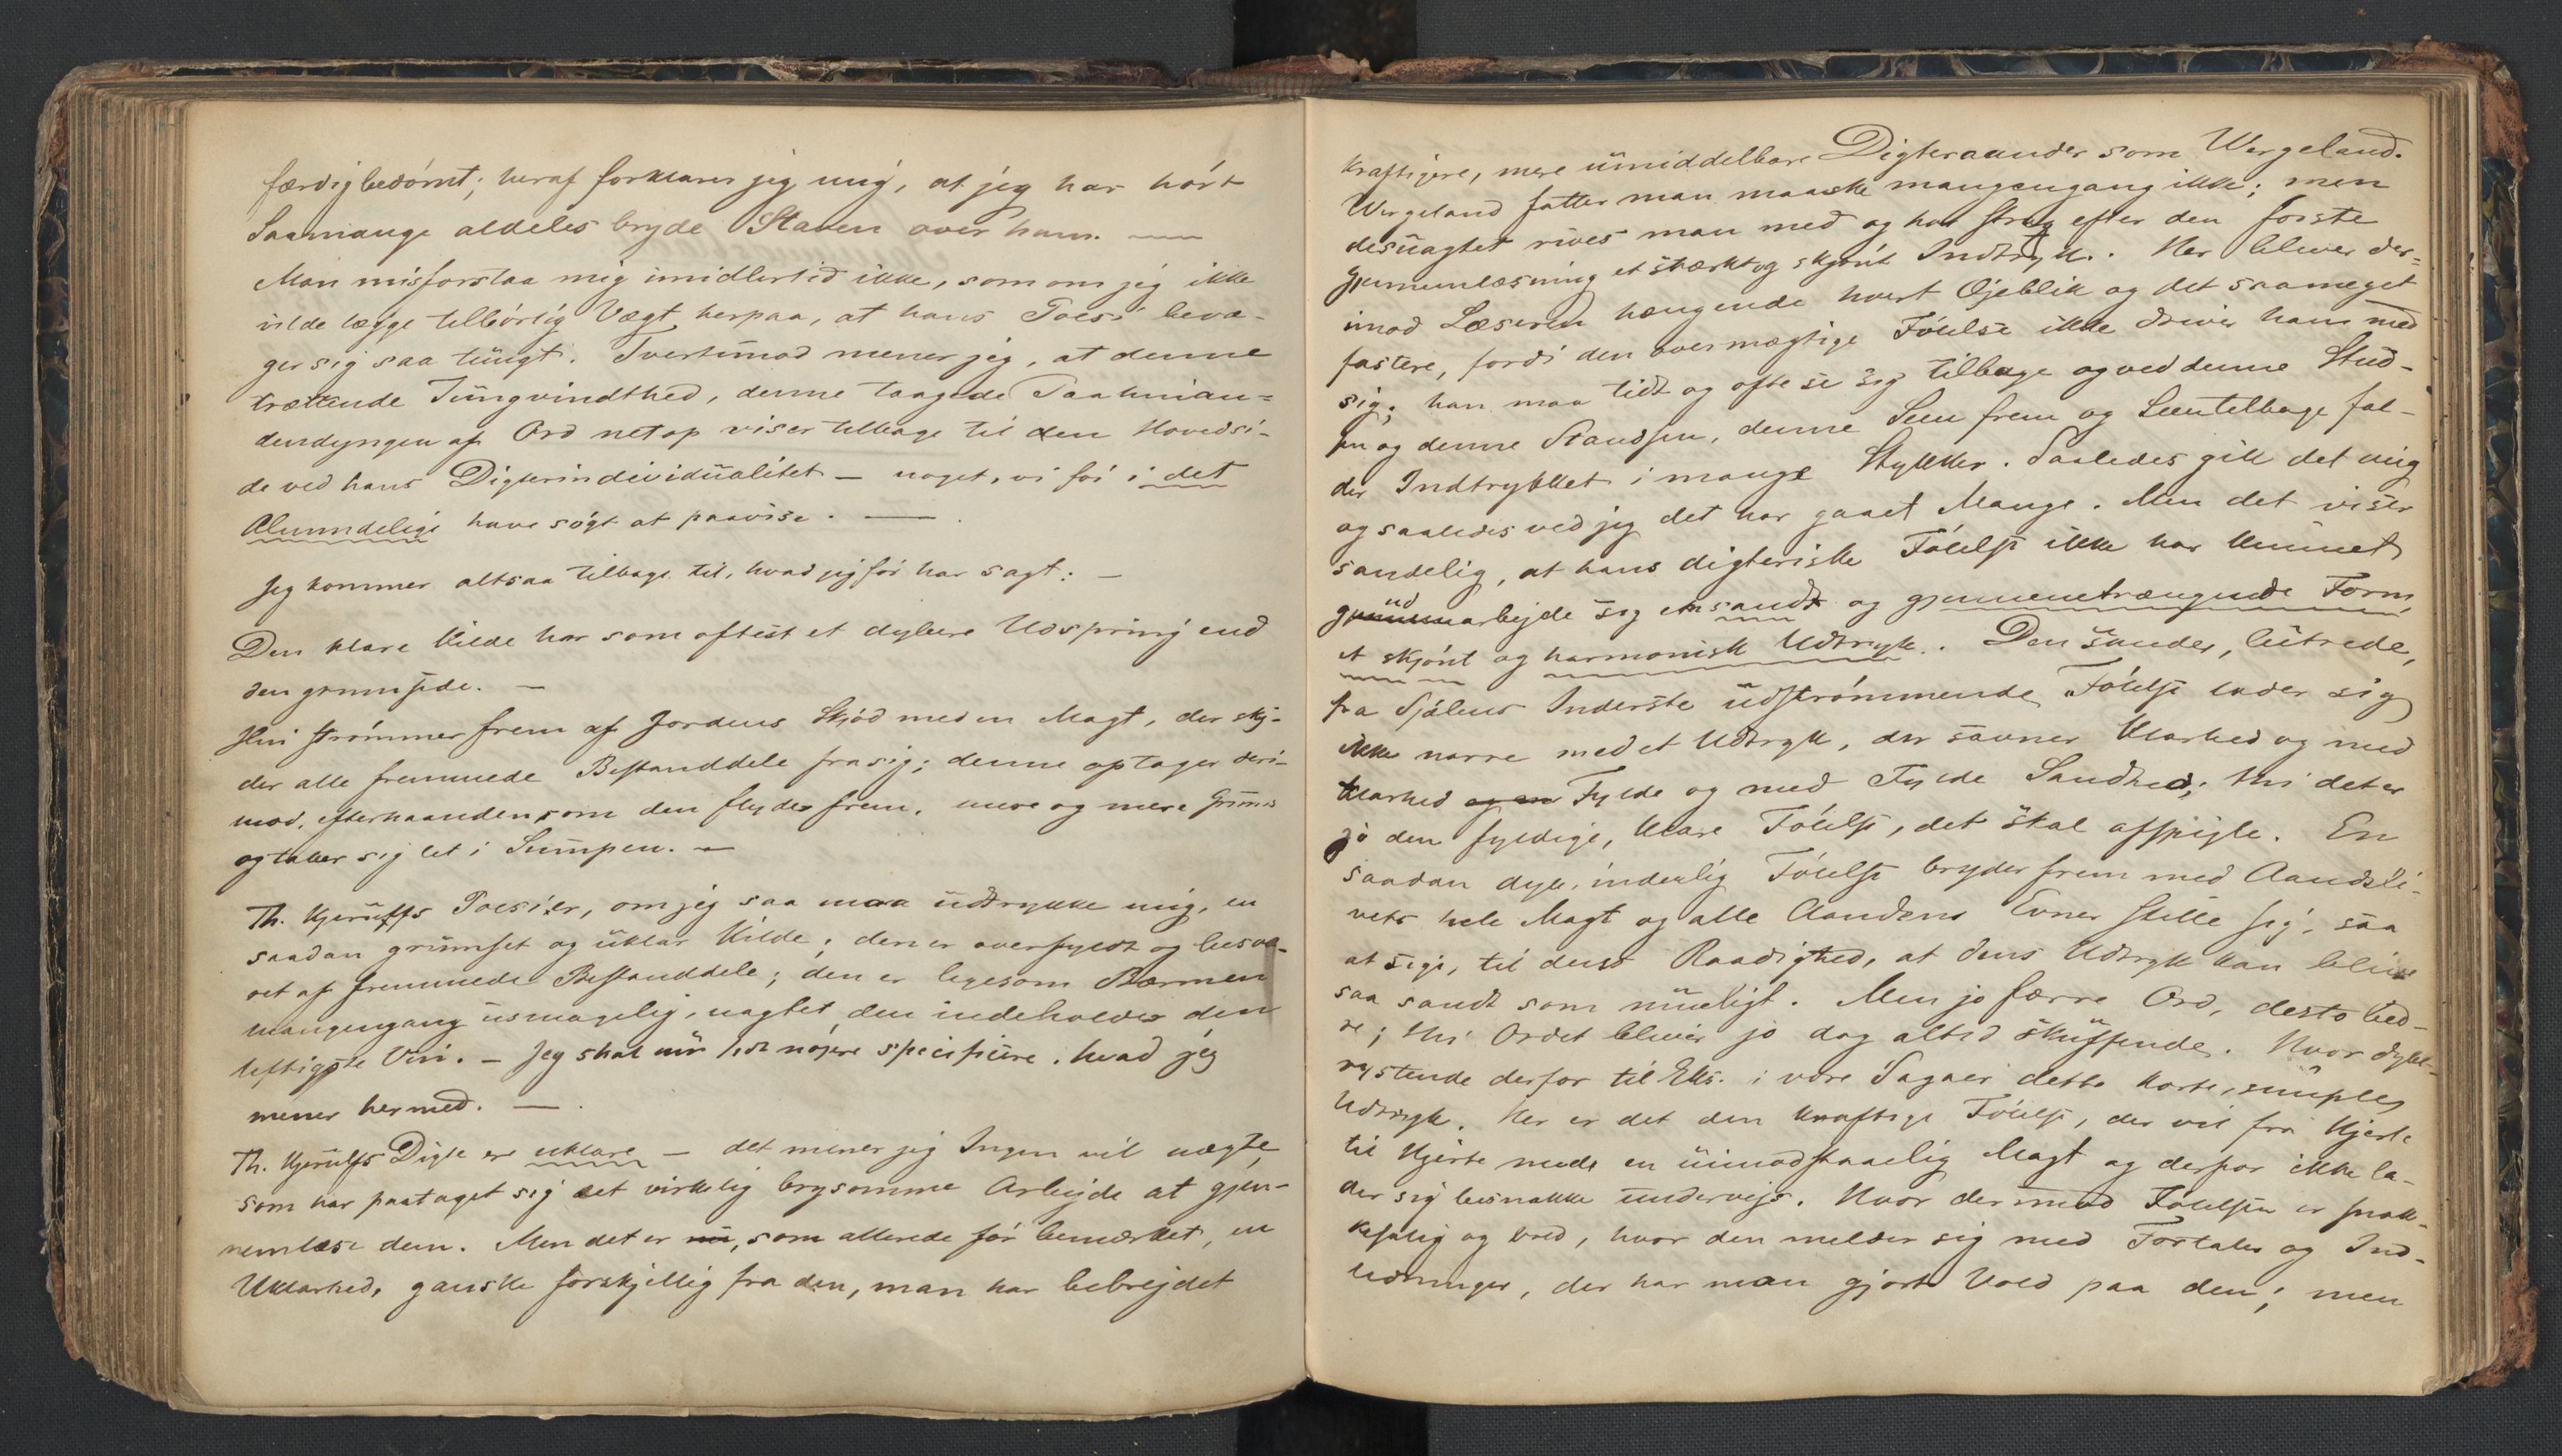 færdigbedømt; heraf forklarer jeg mig, at jeg har hørt
Saamange aldeles bryde Staven over ham. —
Man misforstaa mig imidlertid ikke, som om jeg ikke
vilde lægge tilbørlig Vægt herpaa, at hans Poesi bevæ-
ger sig saa tungt. Tvertimod mener jeg, at denne
trættende Tungvindthed, denne taagede Paahinan-
dendyngen af Ord netop viser tilbage til den Hovedsi-
de ved hans Digterindividualitet — noget, vi før i det
Almindelige have søgt at paavise. —
Jeg kommer altsaa tilbage til, hvad jeg før har sagt: —
Den klare Kilde har som oftest et dybere Udspring end
den grumsede. —
Hin strømmer frem af Jordens Skjød med en Magt, der sky-
der alle fremmede Bestanddele fra sig; denne optager deri-
mod, efterhaanden som den flyder frem, mere og mere Grums
og taber sig let i Sumpen. —
Th. Kjerulfs Poesi er, om jeg saa maa udtrykke mig, en
saadan grumset og uklar Kilde; den er overfyldt og besvæ-
ret af fremmede Bestanddele; den er ligesom Bærmen
mangengang usmagelig, uagtet den indeholder den
kraftigste Vin. — Jeg skal nu lidt nøjere specificere, hvad jeg
mener hermed. —
Th. Kjerulfs Digte er uklare — det mener jeg Ingen vil nægte,
som har paataget sig det virkelig brysomme Arbejde at gjen-
nemlæse dem. Men det er nu, som allerede før bemærket, en
Uklarhed, ganske forskjellig fra den, man har bebrejdet
kraftigere, mere umiddelbare Digteraander som Wergeland.
Wergeland fatter man maaske mangengang ikke; men
desuagtet rives man med og har strax efter den første
Gjennemlæsning et stærkt og skjønt Indtryk. Her bliver der-
imod Læseren hængende hvert Øjeblik og det saameget
fastere, fordi den overmægtige Følelse ikke driver ham med
sig; han maa tidt og ofte se sig tilbage og ved denne Stud-
sen og denne Standsen, denne Seen frem og Seentilbage fal-
der Indtrykket i mange Stykker. Saaledes gik det mig
og saaledes ved jeg det har gaaet Mange. Men det viser
sandelig, at hans digteriske Følelse ikke har kunnet
ud
gjennemarbejde sig en sandt og gjennemtrængende Form,
et skjønt og harmonisk Udtryk. Den sande, lutrede,
fra Sjælens Inderste udstrømmende Følelse lader sig
ikke narre med et Udtryk, der savner Klarhed og med
Klarhed og en Fylde og med Fylde Sandhed; thi det er
jo den fyldige, klare Følelse, det skal afspejle. En
saadan dyb, inderlig Følelse bryder frem med Aandsli-
vets hele Magt og alle Aandens Evner stille sig, saa
at sige, til dens Raadighed, at dens Udtryk kan blive
saa sandt som mueligt. Men jo færre Ord, desto bed-
re; thi Ordet bliver jo dog altid skuffende. Hvor dybt
rystende derfor til Eks. i vore Sagaer dette korte, simple
Udtryk. Her er det den kraftige Følelse, der vil fra Hjerte
til Hjerte med en uimodstaaelig Magt og derfor ikke la-
der sig besnakke undervejs. Hvor derimod Følelsen er snak-
kesalig og bred, hvor den melder sig med Fortaler og Ind-
ledninger, der har man gjort Vold paa den; men